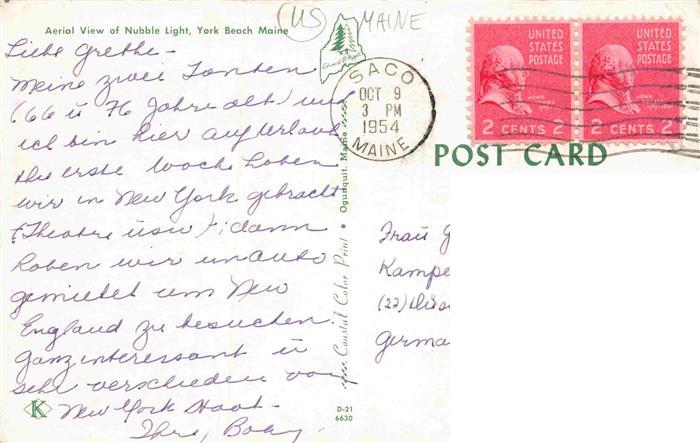 (US) MAINE
Aerial View of Nubble Light, York Beach Maine
Liebe Grethe -
Meine zwei Tanten
(66 u 76 Jahre alt) und
ich bin hier auf Urlaub
die erste Woche haben
wir in New York gebracht
(Theatre usw) + dann
haben wir ein auto
gemietet um New
England zu besuchen.
Ganz interessant u
sehr verschieden von
New York Staat -
Ihre,
K
D-21
6630
Coastal Color Print • Ogunquit, Maine
SACO
OCT 9
3 PM
1954
MAINE
UNITED
STATES
POSTAGE
JOHN
ADAMS
2 CENTS 2
UNITED
STATES
POSTAGE
JOHN
ADAMS
2 CENTS 2
POST CARD
Frau G
Kampe
(22)
Germa